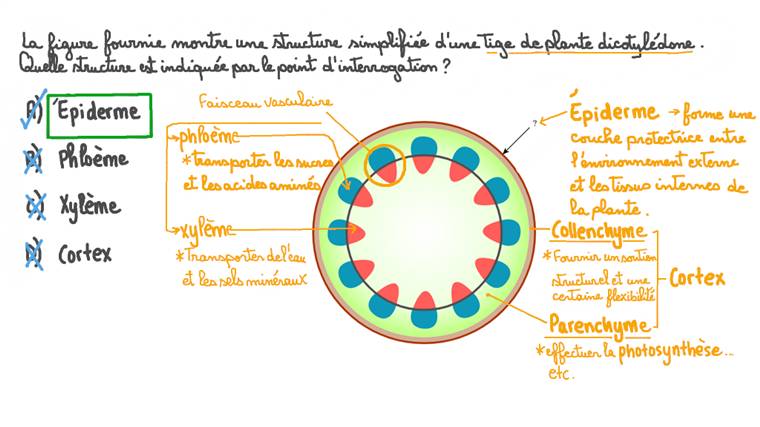 La figure fournie montre une structure simplifiée d'une tige de plante dicotylédone.
Quelle structure est indiquée par le point d'interrogation ?
A) Épiderme
B) Phloème
C) Xylème
D) Cortex
Faisceau vasculaire
phloème
*transporter les sucres
et les acides aminés
xylème
*Transporter de l'eau
et les sels minéraux
?
Épiderme → forme une
couche protectrice entre
l'environnement externe
et les tissus internes de
la plante.
Collenchyme
*Fournir un soutien
structurel et une
certaine flexibilité
Cortex
Parenchyme
*effectuer la photosynthèse...
etc.